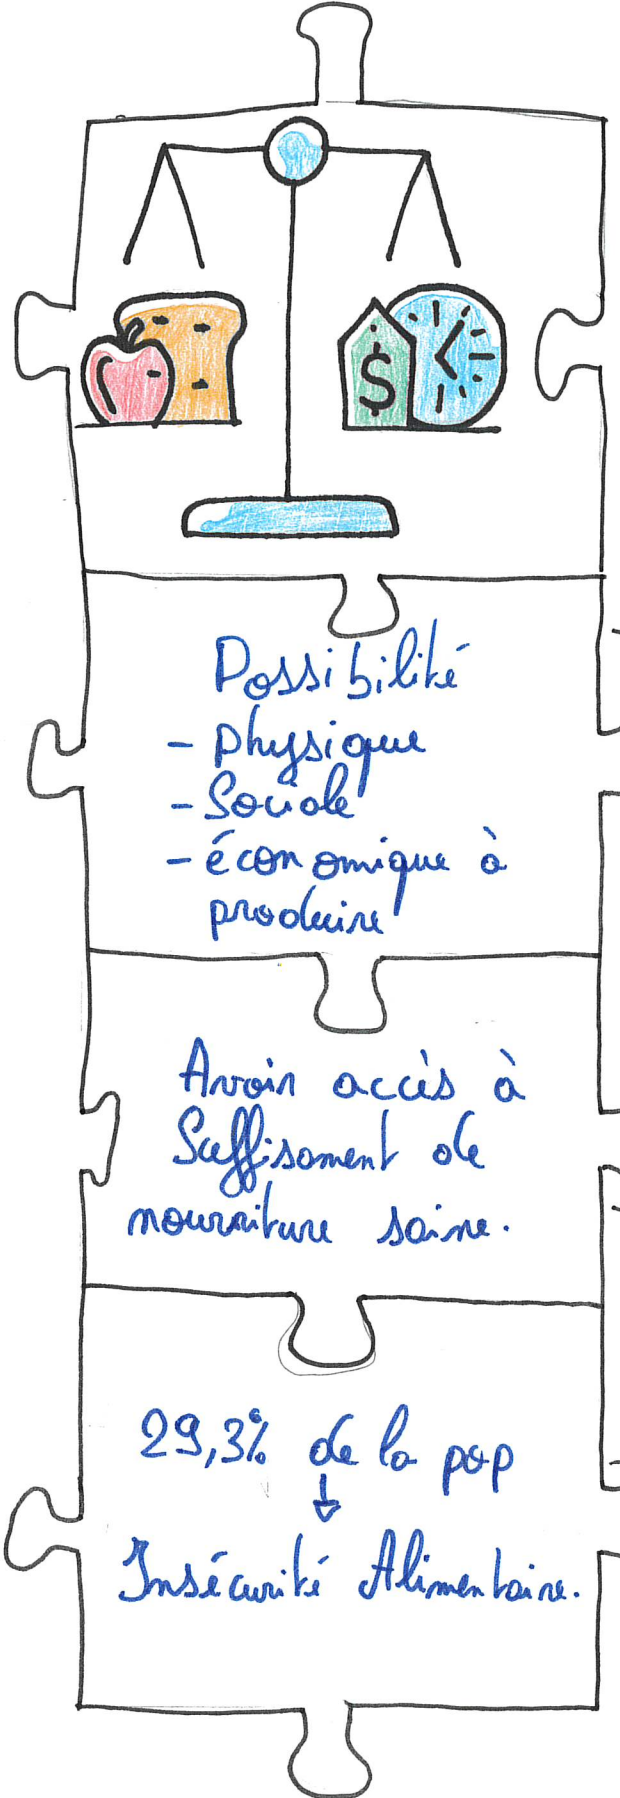 $
Possibilité
- physique
- Sociale
- économique à
produire
Avoir accès à
Suffisament de
nourriture saine.
29,3% de la pop
Insécurité Alimentaire.